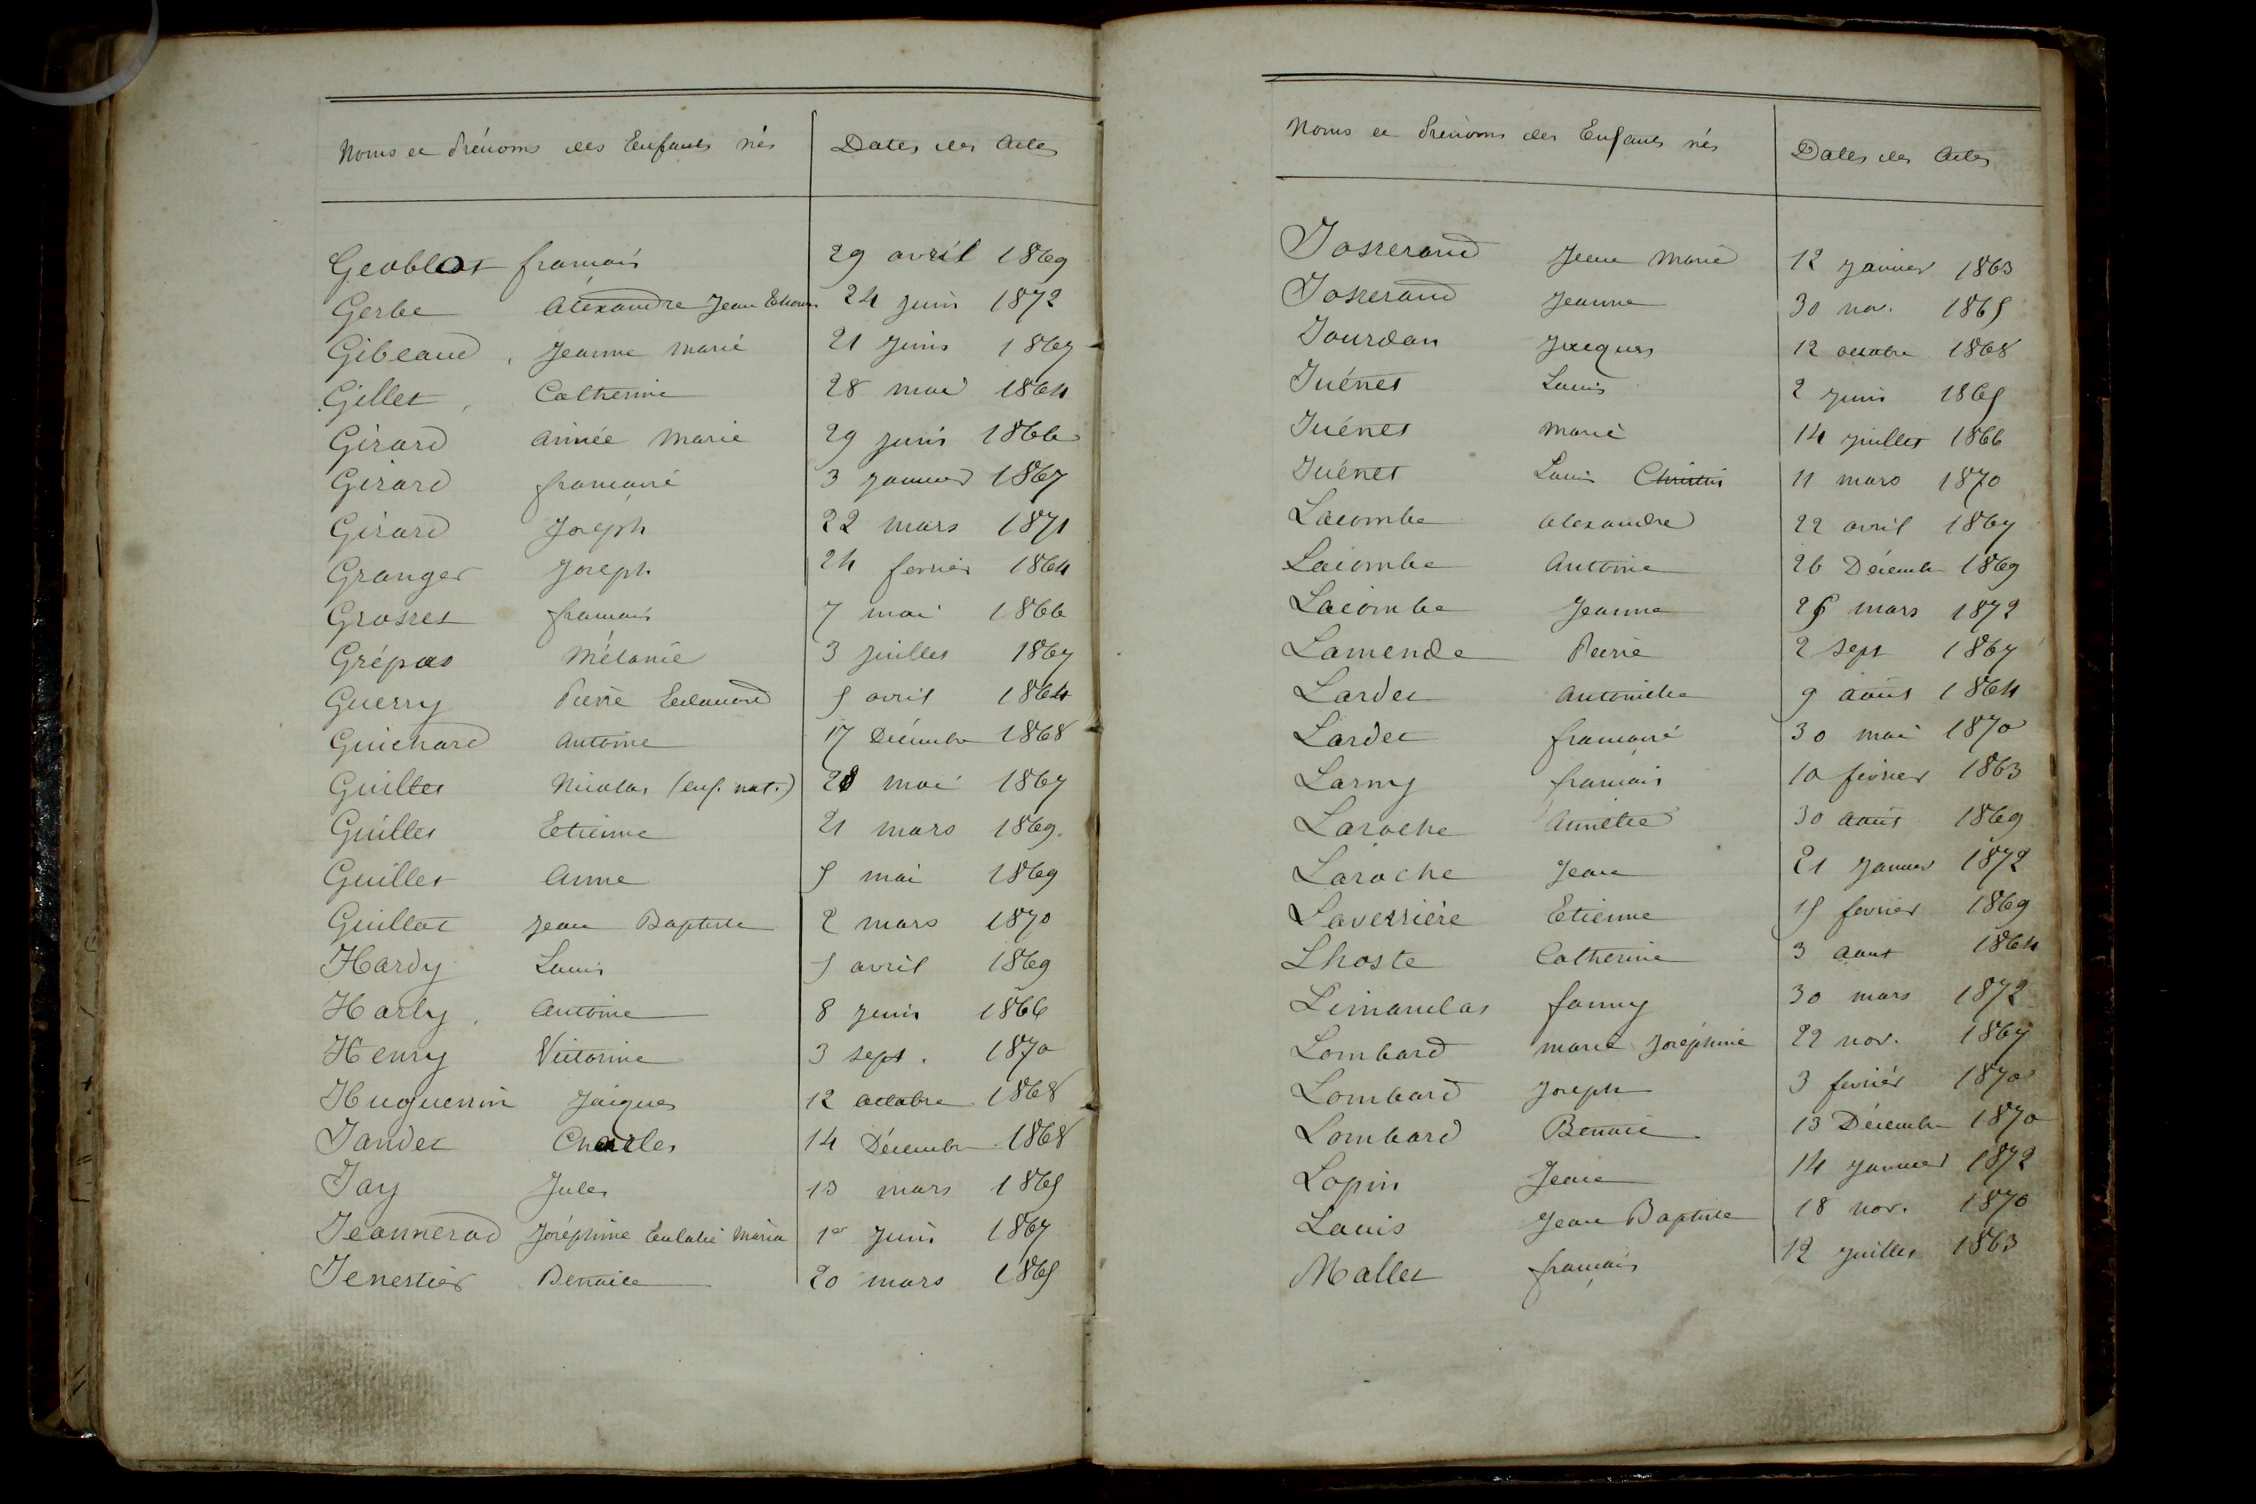 Noms et Prénoms des Enfants nés Dates des Actes
Geoblot françois 29 avril 1869
Gerbe Alexandre Jean 24 juin 1872
Gibeaud, Jeanne Marie 21 juin 1867
Gillet, Catherine 28 mai 1864
Girard Aimée Marie 29 juin 1866
Girard françoise 3 janvier 1867
Girard Joseph 22 mars 1871
Granger Joseph 24 fevrier 1864
Grosset françois 7 mai 1866
Grépas Mélanie 3 juillet 1867
Guerry Pierre Edouard 5 avril 1864
Guichard Antoine 17 Décembre 1868
Guillet Nicolas (enf. nat.) 28 mai 1867
Guillet Etienne 21 mars 1869.
Guillet Anne 5 mai 1869
Guillot Jean Baptiste 2 mars 1870
Hardy Louis 5 avril 1869
Harly, Antoine 8 juin 1866
Henry Victorine 3 sept. 1870
Huguenin Jacques 12 octobre 1868
Jandet Charles 14 Décembre 1868
Jay Jules 13 mars 1865
Jeannerod Joséphine Eulalie Maria 1er juin 1867
Jenestier Benoite 20 mars 1865
Noms et Prénoms des Enfants nés Dates des Actes
Josserand Jean Marie 12 janvier 1863
Josserand Jeanne 30 nov. 1865
Jourdan Jacques 12 octobre 1868
Juénet Louis 2 juin 1865
Juénet Marie 14 juillet 1866
Juénet Louis 11 mars 1870
Lacombe Alexandre 22 avril 1867
Lacombe Antoine 26 Décembre 1869
Lacombe Jeanne mars 1872
Lamende Pierre 2 sept 1867
Lardet Antoinette 9 août 1864
Lardet françoise 30 mai 1870
Larny françois 10 février 1863
Laroche Annette 30 août 1869
Laroche Jean 21 janvier 1872
Laverrière Etienne 15 fevrier 1869
Lhoste Catherine 3 aout 1864
Limandas fanny 30 mars 1872
Lombard marie Joséphine 22 nov. 1867
Lombard Joseph 3 fevrier 1870
Lombard Benoit 13 Décembre 1870
Lopin Jean 14 janvier 1872
Louis Jean Baptiste 18 nov. 1870
Mallet françois 12 juillet 1863